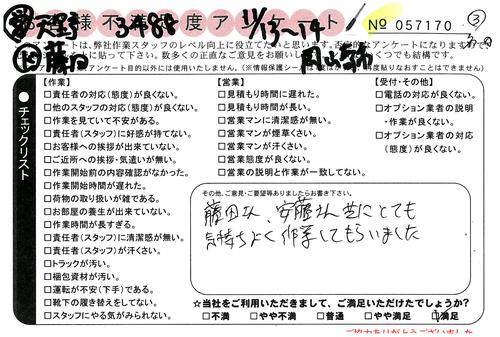 お客様不満足度アンケート
天野 3488 11/13〜14
№ 057170
③
藤田
岡山
このアンケートは、弊社作業スタッフのレベル向上に役立てたいと思います。否定的なアンケートになりますが
に貼って下さい。数多くの正直なご意見をお願い
くつでも結構です。
アンケート目的以外には使用いたしません。(※情報保護シー
度貼りなおすことはできません)
チェックリスト
【作業】
□責任者の対応(態度)が良くない。
□他のスタッフの対応(態度)が良くない。
□作業を見ていて不安がある。
□責任者(スタッフ)に好感が持てない。
□お客様への挨拶が出来ていない。
□ご近所への挨拶・気遣いが無い。
□作業開始前の内容確認がなかった。
□作業開始時間が遅れた。
□荷物の取り扱いが雑である。
□お部屋の養生が出来ていない。
□作業時間が長すぎる。
□責任者(スタッフ)に清潔感が無い。
□責任者(スタッフ)が汗くさい。
□トラックが汚い。
□梱包資材が汚い。
□運転が不安(下手)である。
□靴下の履き替えをしてない。
□スタッフにやる気がみられない。
【営業】
□見積もり時間に遅れた。
□見積もり時間が長い。
□営業マンに清潔感が無い。
□営業マンが煙草くさい。
□営業マンが汗くさい。
□営業態度が良くない。
□営業の説明と作業が一致してない。
【受付・その他】
□電話の対応が良くない。
□オプション業者の説明
・作業が良くない。
□オプション業者の対応
(態度)が良くない。
その他、ご意見・ご要望等ありましたらお書き下さい。
藤田さん、安藤さん共にとても
気持ちよく作業してもらいました
☆当社をご利用いただきまして、ご満足いただけたでしょうか?
□不満 □やや不満 □普通 □やや満足 □満足
ご協力ありがとうございました